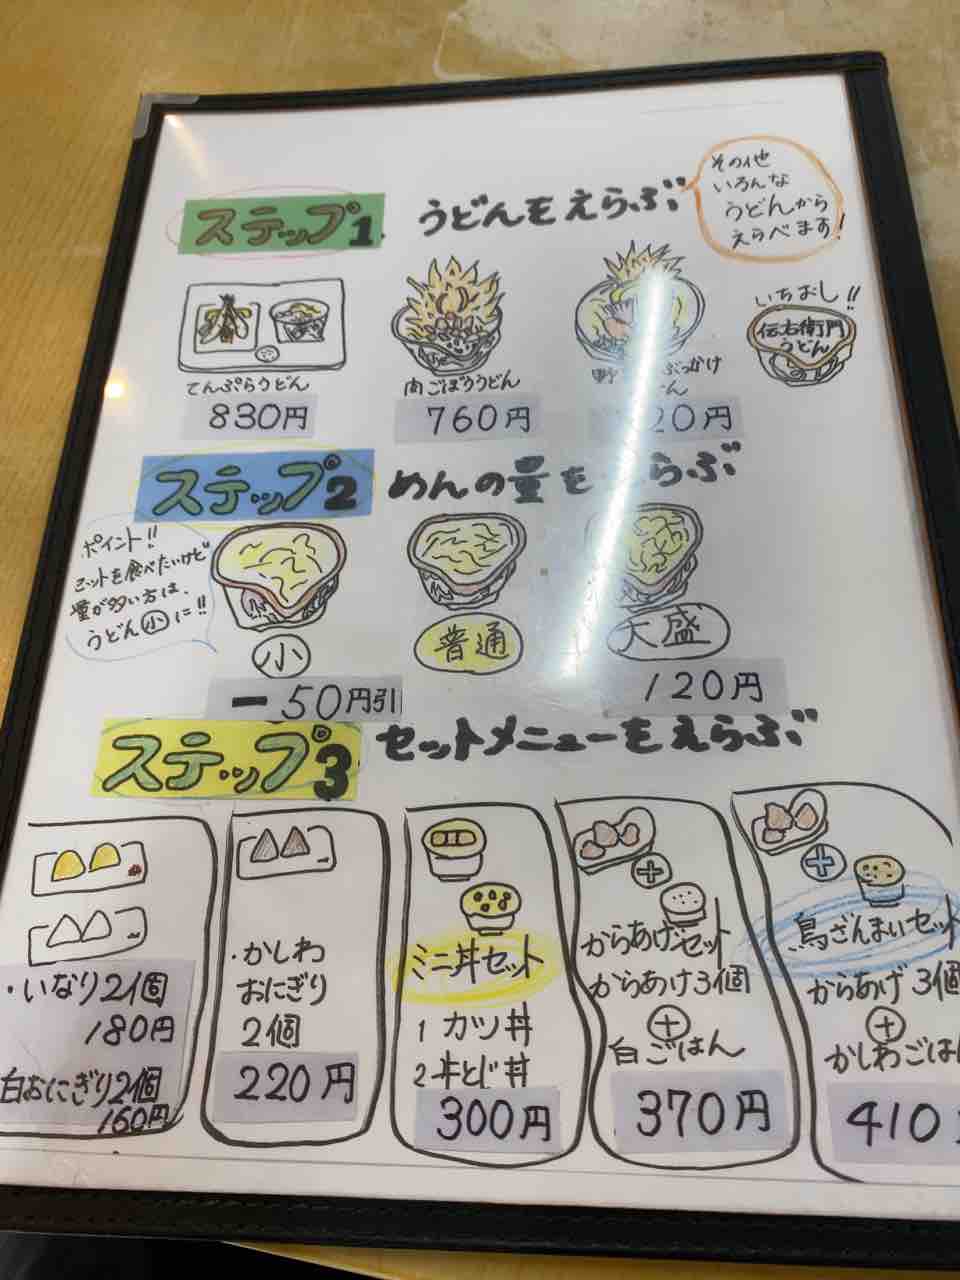 ステップ1 うどんをえらぶ
その他
いろんな
うどんから
えらべます!
いちおし!!
伝右衛門
うどん
てんぷらうどん
肉ごぼううどん
野 ぶっかけ
ん
830円
760円
20円
ステップ2 めんの量をえらぶ
ポイント!!
セットを食べたいけど
量が多い方は、
うどん小に!!
小
普通
大盛
-50円引
120円
ステップ3 セットメニューをえらぶ
・いなり2個
180円
白おにぎり2個
160円
・かしわ
おにぎり
2個
220円
ミニ丼セット
1 カツ丼
2 牛とじ丼
300円
+
からあげセット
からあげ3個
+
白ごはん
370円
+
鳥ざんまいセット
からあげ3個
+
かしわごはん
410